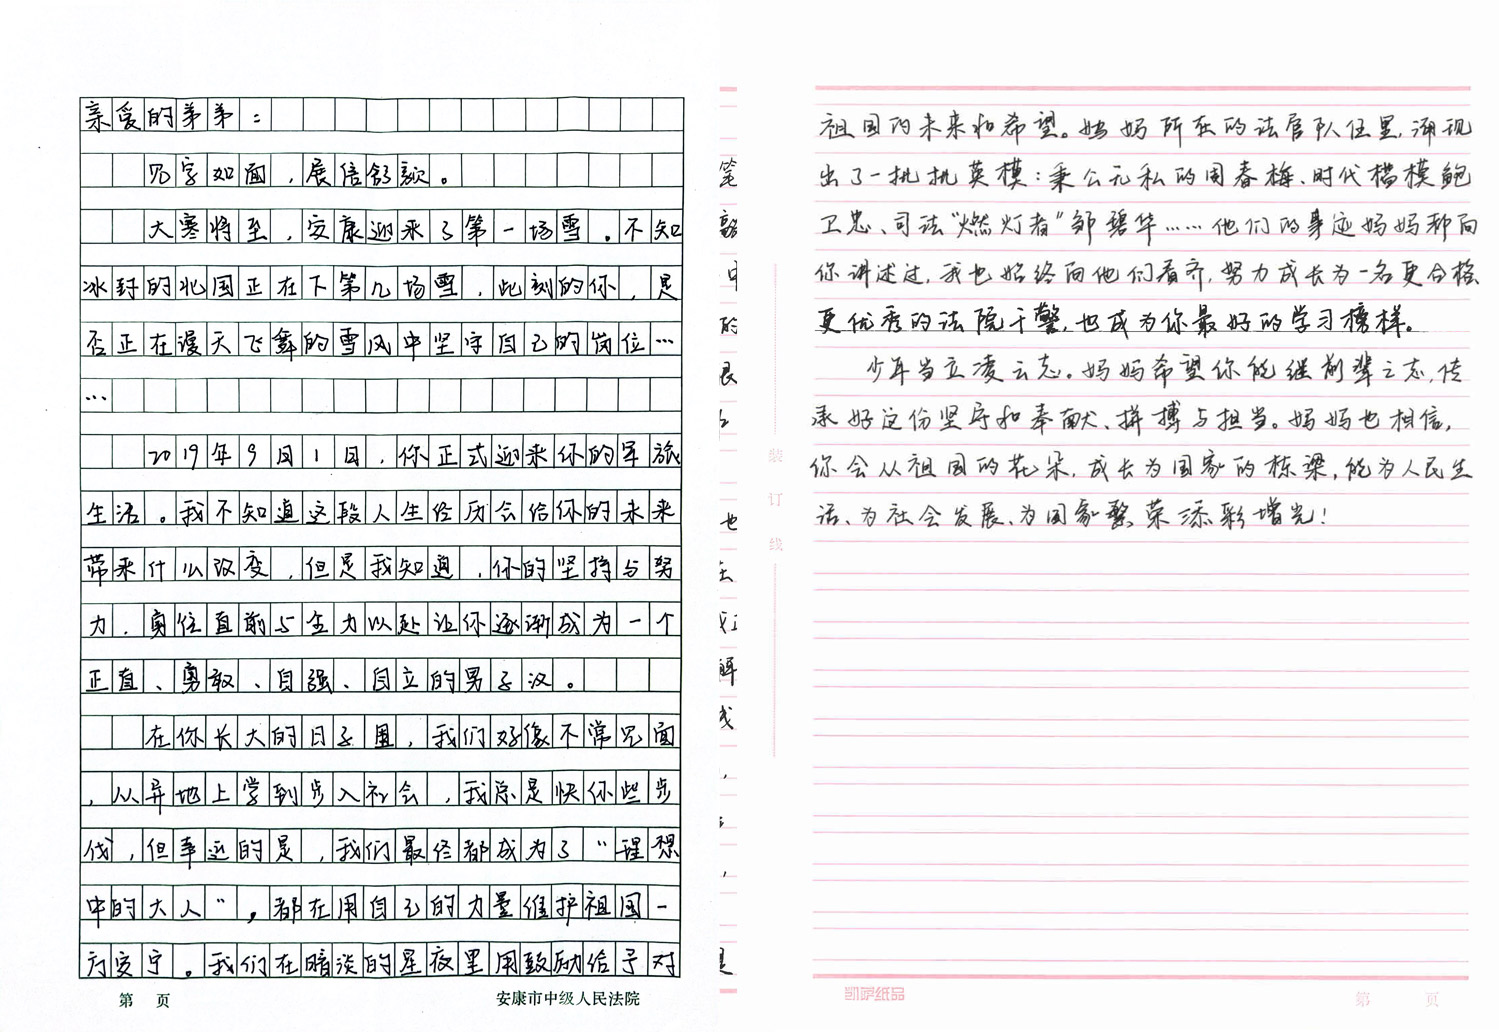 亲爱的弟弟：
见字如面，展信舒颜。
大寒将至，安康迎来了第一场雪。不知
冰封的北国正在下第几场雪，此刻的你，是
否正在漫天飞舞的雪风中坚守自己的岗位…
…
2019年9月1日，你正式迎来你的军旅
生活。我不知道这段人生经历会给你的未来
带来什么改变，但是我知道，你的坚持与努
力，勇往直前与全力以赴让你逐渐成为一个
正直、勇敢、自强、自立的男子汉。
在你长大的日子里，我们好像不常见面
，从异地上学到步入社会，我总是快你些步
伐，但幸运的是，我们最终都成为了“理想
中的大人”，都在用自己的力量维护祖国一
方安宁。我们在暗淡的星夜里用鼓励给予对
第 页
安康市中级人民法院
笔
中
的
良
也
在
解
我
是
装
订
线
祖国的未来和希望。妈妈所在的法官队伍里，涌现
出了一批批英模：秉公无私的周春梅、时代楷模鲍
卫忠、司法“燃灯者”邹碧华……他们的事迹妈妈都向
你讲述过，我也始终向他们看齐，努力成长为一名更合格、
更优秀的法院干警，也成为你最好的学习榜样。
少年当立凌云志。妈妈希望你能继前辈之志，传
承好这份坚守和奉献、拼搏与担当。妈妈也相信，
你会从祖国的花朵，成长为国家的栋梁，能为人民生
活、为社会发展、为国家繁荣添彩增光！
凯萨纸品
第 页